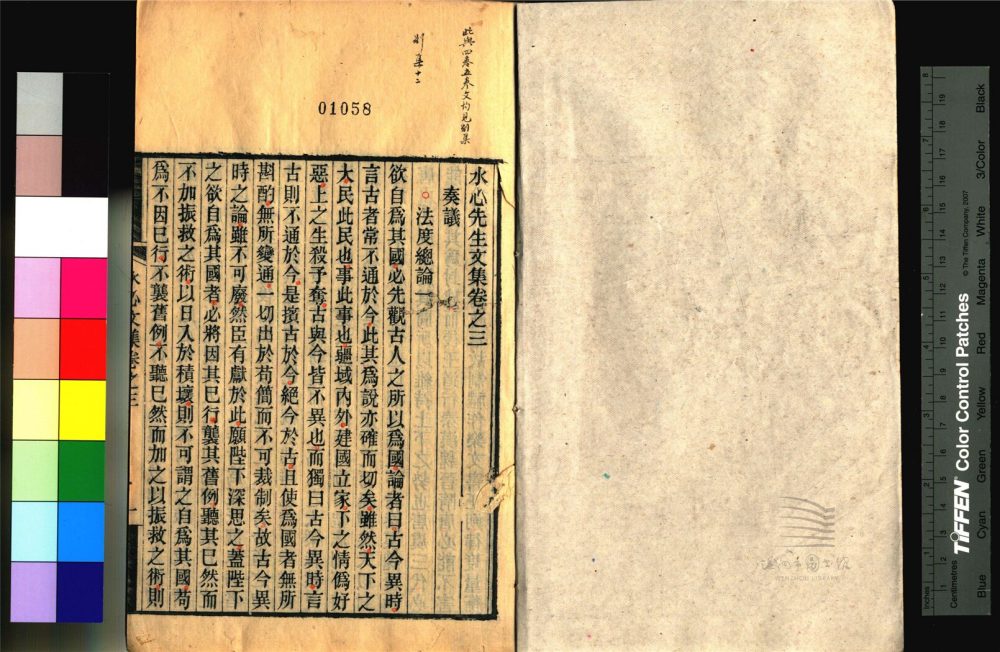 此與四卷五卷文均見別集
別集十二
01058
水心先生文集卷之三
奏議
法度總論一
欲自爲其國必先觀古人之所以爲國論者曰古今異時
言古者常不通於今此其爲說亦確而切矣雖然天下之
大民此民也事此事也疆域內外建國立家下之情僞好
惡上之生殺予奪古與今皆不異也而獨曰古今異時言
古則不通於今是擯古於今絕今於古且使爲國者無所
斟酌無所變通一切出於苟簡而不可裁制矣故古今異
時之論雖不可廢然臣有獻於此願陛下深思之蓋陛下
之欲自爲其國者必將因其已行襲其舊例聽其已然而
不加振救之術以日入於積壞則不可謂之自爲其國苟
爲不因已行不襲舊例不聽已然而加之以振救之術則
水心文集卷之三
一
溫州市圖書館
WENZHOU LIBRARY
TIFFEN Color Control Patches
© The Tiffen Company, 2007
Inches
Centimetres
Blue
Cyan
Green
Yellow
Red
Magenta
White
3/Color
Black